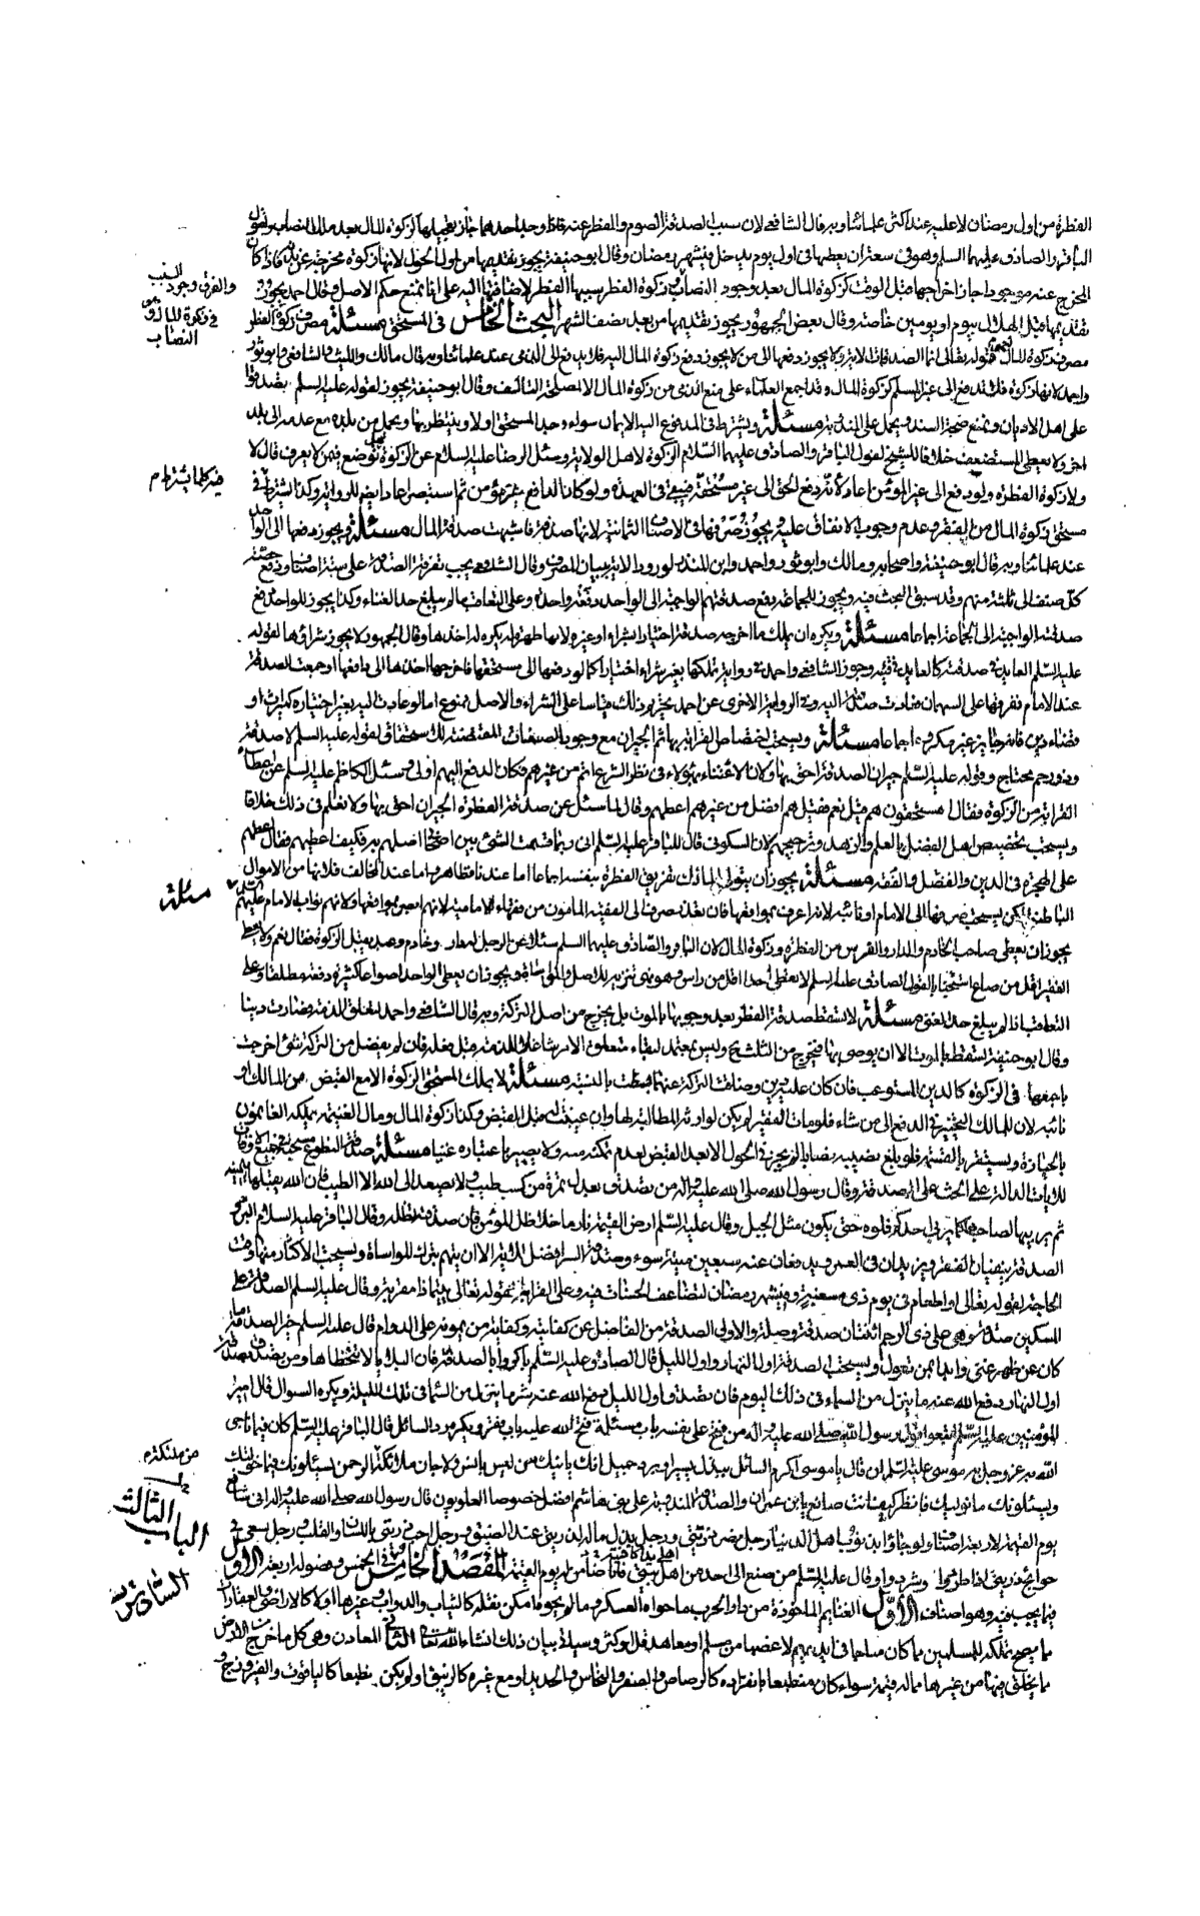 الفطرة من اول رمضان لا عليه عند اكثر علمائنا وبه قال الشافعي لان سبب الصدقة الصوم والفطر عنه فاذا وجد احدهما جاز تعجيلها كزكوة المال بعد ملك النصاب ولقول
الباقر والصادق عليهما السلم وهو في سعة ان يعطيها في اول يوم يدخل في شهر رمضان وقال ابو حنيفة يجوز تقديمها من اول الحول لانها زكوة مخرجة عن بدنه فاذا كان
المخرج عنه موجودا جاز اخراجها قبل الوقت كزكوة المال بعد وجود النصاب وزكوة الفطر سببها الفطر لاضافتها اليه على انا نمنع حكم الاصل وقال احمد يجوز
تقديمها قبل الهلال بيوم او يومين خاصة وقال بعض الجمهور يجوز تقديمها من بعد نصف الشهر البحث الخامس في المستحق مسئلة مصرف زكوة الفطر
مصرف زكوة المال لقوله تعالى انما الصدقات الاية ولا يجوز دفعها الى من لا يجوز دفع زكوة المال اليه فلا يدفع الى الذمي عند علمائنا وبه قال مالك والليث والشافعي وابو ثور
واحمد لانها زكوة فلا تدفع الى غير المسلم كزكوة المال وقد اجمع العلماء على منع الذمي من زكوة المال الا لمصلحة التألف وقال ابو حنيفة يجوز لقوله عليه السلم تصدقوا
على اهل الاديان ونمنع صحة السند ويحمل على المندوبة مسئلة ويشترط في المدفوع اليه الايمان سواء وجد المستحق اولا وينتظر بها ويحمل من بلده مع عدمه الى بلد
اخر ولا يعطى المستضعف خلافا للشيخ لقول الباقر والصادق عليهما السلام الزكوة لاهل الولاية وسئل الرضا عليه السلام عن الزكوة هل توضع فيمن لا يعرف قال لا
ولا زكوة الفطرة ولو دفع الى غير المؤمن اعاد لانه دفع الحق الى غير مستحقه فيبقى في العهدة ولو كان الدافع غير مؤمن ثم استبصر اعاد ايضا للرواية وكذا يشترط في
مستحق زكوة المال من الفقر وعدم وجوب الانفاق عليه ويجوز صرفها في الاصناف الثمانية لانها صدقة فاشبهت صدقة المال مسئلة ويجوز دفعها الى الواحد
عند علمائنا وبه قال ابو حنيفة واصحابه ومالك وابو ثور واحمد وابن المنذر لورود الاية ببيان المصرف وقال الشافعي يجب تفرقة الصدقة على ستة اصناف ودفع حصة
كل صنف الى ثلثة منهم وقد سبق البحث فيه ويجوز للجماعة دفع صدقتهم الواجبة الى الواحد دفعة واحدة وعلى التعاقب ما لم يبلغ حد الغناء وكذا يجوز للواحد دفع
صدقته الواجبة الى الجماعة اجماعا مسئلة ويكره ان يملك ما اخرجه صدقة اختيارا بشراء او غيره لانها طهرة له يكره له اخذها وقال الجمهور لا يجوز شراؤها لقوله
عليه السلم العايد في صدقته كالعايد في قيئه وجوز الشافعي واحمد في رواية تملكها بغير شراء اختيارا كما لو دفعها الى مستحقها فاخرجها اخذها الى دافعها او جمعت الصدقة
عند الامام ففرقها على السهمان فعادت صدقته اليه وفي الرواية الاخرى عن احمد يحرم ذلك قياسا على الشراء والاصل ممنوع اما لو عادت اليه بغير اختياره كميراث او
قضاء دين فانه جايز غير مكروه اجماعا مسئلة ويستحب اختصاص القرابة بها ثم الجيران مع وجود الصفات المقتضية للاستحقاق لقوله عليه السلم لا صدقة
وذو رحم محتاج وقوله عليه السلم جيران الصدقة احق بها ولان الاعتناء بهؤلاء في نظر الشرع اتم من غيرهم فكان الدفع اليهم اولى وسئل الكاظم عليه السلم عن اعطاء
القرابة من الزكوة فقال مستحقون هم قيل نعم فقيل هم افضل من غيرهم اعطهم وقال لما سئل عن صدقة الفطرة الجيران احق بها ولا نعلم في ذلك خلافا
ويستحب تخصيص اهل الفضل بالعلم والزهد وترجيحهم لان السكوني قال للباقر عليه السلم اني ربما قسمت الشئ بين اصحابي اصلهم به فكيف اعطيهم فقال اعطهم
على الهجرة في الدين والفضل والفقه مسئلة يجوز ان يتولى المالك تفريق الفطرة بنفسه اجماعا اما عندنا فظاهر واما عند المخالف فلانها من الاموال
الباطنة لكن يستحب صرفها الى الامام او نائبه لانه اعرف بمواقعها فان تعذر صرف الى الفقيه المأمون من فقهاء الامامية لانهم ابصر بمواقعها ولانهم نواب الامام عليه السلم
يجوز ان يعطى صاحب الخادم والدار والفرس من الفطرة وزكوة المال لان الباقر والصادق عليهما السلم سئلا عن الرجل له دار وخادم وعبد يقبل الزكوة فقال نعم ولا يعطى
الفقير اقل من صاع استحبابا لقول الصادق عليه السلم لا تعطي احدا اقل من راس وهو ينفي تنزيه للاصل ويجوز ان يعطى الواحد اصواعا كثيرة دفعة مطلقا وعلى
التعاقب اذا لم يبلغ حد الغنى مسئلة لا تسقط صدقة الفطر بعد وجوبها بالموت بل يخرج من اصل التركة وبه قال الشافعي واحمد لتعلق الذمة فصارت دينا
وقال ابو حنيفة تسقط بالموت الا ان يوصي بها فتخرج من الثلث وليس بمعتمد لبقاء متعلق الامر شاغلا للذمة قبل فعله فان لم يفضل من التركة شئ اخرجت
باجمعها في الزكوة كالدين المستوعب فان كان عليه دين وضاقت التركة عنهما قسطت بالنسبة مسئلة لا يملك المستحق الزكوة الا مع القبض من المالك او
نائبه لان للمالك التخيير في الدفع الى من شاء فلو مات الفقير لم يكن لوارثه المطالبة بها وان عينت له قبل القبض وكذا زكوة المال ومال الغنيمة يملكه الغانمون
بالحيازة ويستقر بالقسمة فلو بلغ نصيبه نصابا لم يجر في الحول الا بعد القبض لعدم تمكنه منه ولا يصير باعتباره غنيا مسئلة صدقة التطوع مستحبة في جميع الاوقات
للايات الدالة على الحث على الصدقة وقال رسول الله صلى الله عليه وآله من تصدق بعدل تمرة من كسب طيب ولا يصعد الى الله الا الطيب فان الله يقبلها بيمينه
ثم يربيها لصاحبها كما يربي احدكم فلوه حتى يكون مثل الجبل وقال عليه السلم ارض القيمة نار ما خلا ظل المؤمن فان صدقته تظله وقال الباقر عليه السلام البر و
الصدقة ينفيان الفقر ويزيدان في العمر ويدفعان عنه سبعين ميتة سوء وصدقة السر افضل للاية الا ان يتهم بترك المواساة ويستحب الاكثار منها وقت
الحاجة لقوله تعالى او اطعام في يوم ذي مسغبة وفي شهر رمضان لتضاعف الحسنات فيه وعلى القرابة لقوله تعالى يتيما ذا مقربة وقال عليه السلم الصدقة على
المسكين صدقة وهي على ذي الرحم اثنتان صدقة وصلة والاولى الصدقة من الفاضل عن كفايته وكفاية من يمونه على الدوام قال عليه السلم خير الصدقة ما
كان عن ظهر غنى وابدأ بمن تعول ويستحب الصدقة اول النهار واول الليل قال الصادق عليه السلم باكروا بالصدقة فان البلاء لا يتخطاها ومن تصدق بصدقة
اول النهار دفع الله عنه ما ينزل من السماء في ذلك اليوم فان تصدق اول الليل دفع الله عنه شر ما ينزل من السماء في تلك الليلة ويكره السؤال قال امير
المؤمنين عليه السلم اتبعوا قول رسول الله صلى الله عليه وآله من فتح على نفسه باب مسئلة فتح الله عليه باب فقر ويكره رد السائل قال الباقر عليه السلم كان فيما ناجى
الله به عز وجل به موسى عليه السلم ان قال يا موسى اكرم السائل ببذل يسير او برد جميل انك يأتيك من ليس بانس ولا جان ملائكة الرحمن يسئلونك فيما خولتك
ويسئلونك مما نولتك فانظر كيف انت صانع يا بن عمران والصدقة المندوبة على بني هاشم افضل خصوصا العلويون قال رسول الله صلى الله عليه وآله اني شافع
يوم القيمة لاربعة اصناف ولو جاؤا بذنوب اهل الدنيا رجل نصر ذريتي ورجل بذل ماله لذريتي عند الضيق ورجل احب ذريتي باللسان والقلب ورجل سعى في
حوائج ذريتي اذا طردوا وشردوا وقال عليه السلم من صنع الى احد من اهل بيتي يدا كافيته يوم القيمة المقصد الخامس في الخمس وفصوله اربعة الاول
فيما يجب فيه وهو اصناف الاول الغنايم الماخوذة من دار الحرب ما حواه العسكر وما لم يحوه امكن نقله كالثياب والدواب وغيرها اولا كالاراضي والعقارات
مما يصح تملكه للمسلمين مما كان مباحا في ايديهم لا غصبا من مسلم او معاهد قل او كثر وسيأتي بيان ذلك انشاء الله تعالى الثاني المعادن وهي كل ما خرج من الارض
مما يخلق فيها من غيرها مما له قيمة سواء كان منطبعا بانفراده كالرصاص والصفر والنحاس والحديد او مع غيره كالزيبق او لم يكن منطبعا كالياقوت والفيروزج و
والفرق وجود السبب
في زكوة المال وهو
النصاب
مسئلة
من تذكرة
الباب الثالث